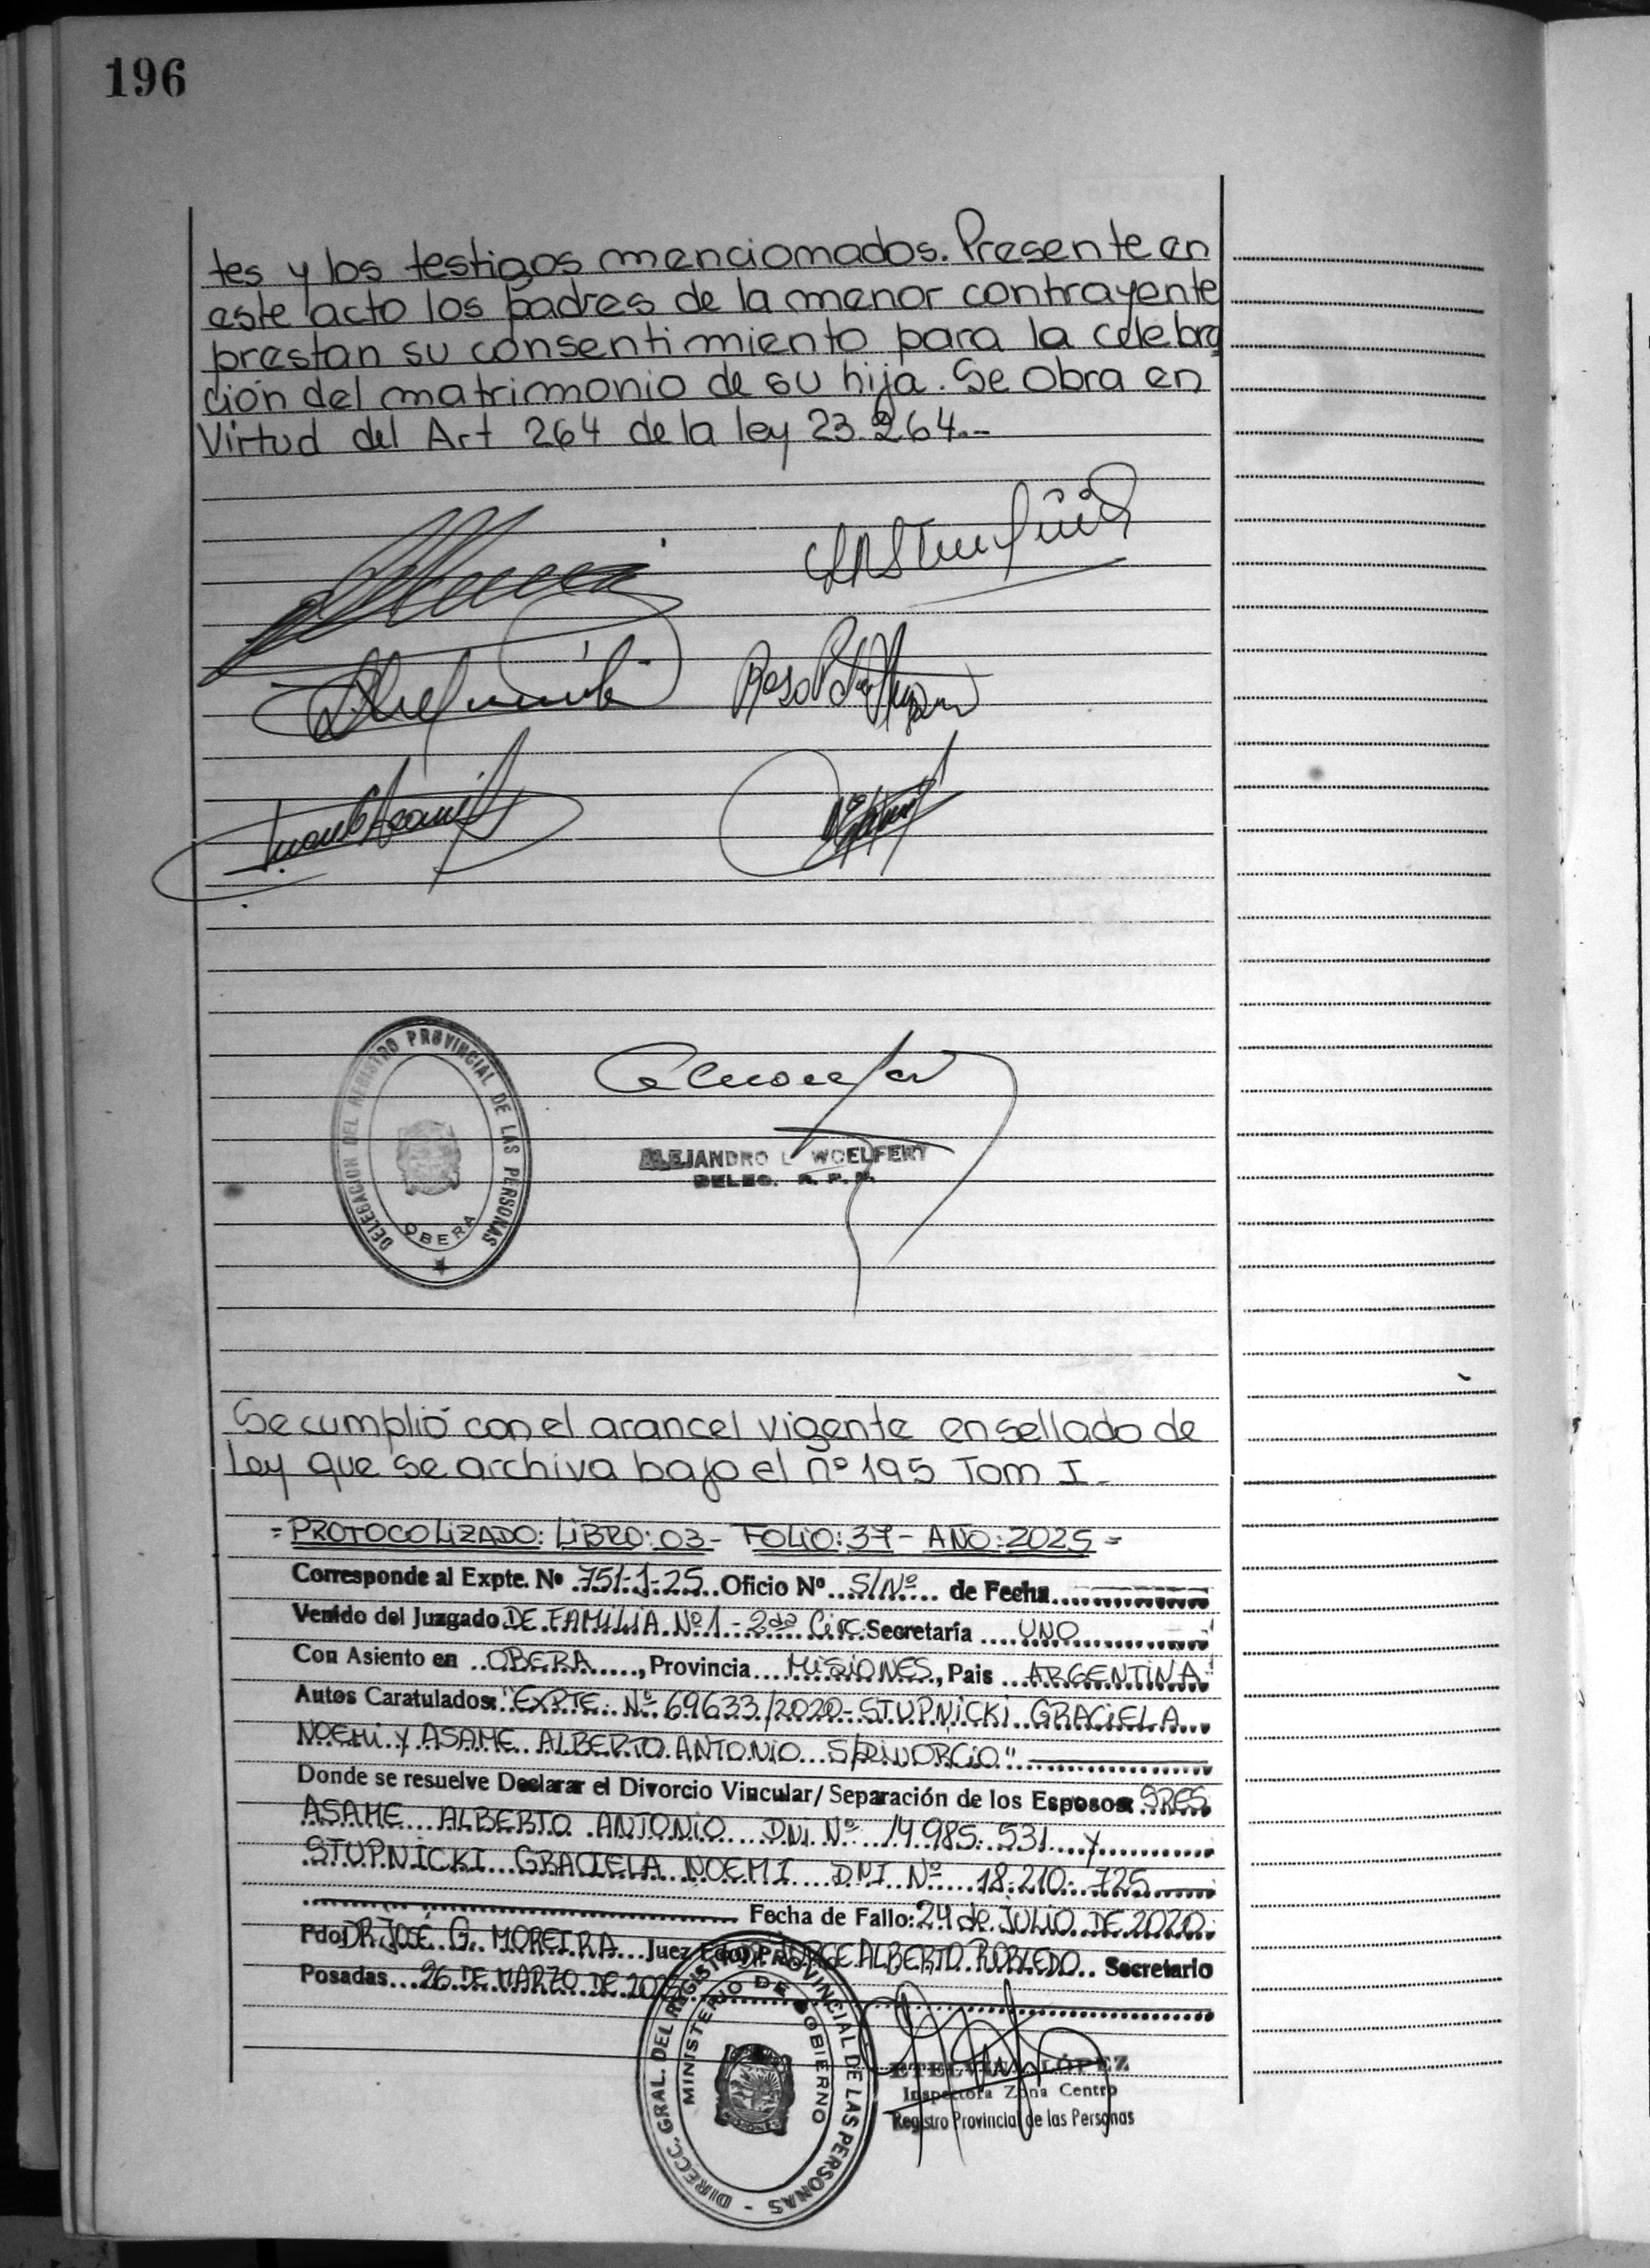 196
tes y los testigos mencionados. Presente en
este acto los padres de la menor contrayente
prestan su consentimiento para la celebra
ción del matrimonio de su hija. Se obra en
Virtud del Art 264 de la ley 23.264.--
DELEGACION DEL REGISTRO PROVINCIAL DE LAS PERSONAS
OBERA
ALEJANDRO L WOELFERT
DELEG. R. P. P.
Se cumplió con el arancel vigente en sellado de
Ley que se archiva bajo el nº 195 Tom I -
= PROTOCOLIZADO: LIBRO: 03 - FOLIO: 37 - AÑO: 2025 =
Corresponde al Expte. Nº 751-1-25 Oficio Nº S/Nº de Fecha
Venido del Juzgado DE FAMILIA Nº 1 - 2da Circ. Secretaría UNO
Con Asiento en OBERA, Provincia MISIONES, Pais ARGENTINA
Autos Caratulados: "EXPTE. Nº 69633/2020 - STUPNICKI GRACIELA
NOEMI Y ASAME ALBERTO ANTONIO S/DIVORCIO"
Donde se resuelve Declarar el Divorcio Vincular/ Separación de los Esposos: SRES
ASAME ALBERTO ANTONIO DNI Nº 14.985.531 y
STUPNICKI GRACIELA NOEMI DNI Nº 18.210.725
Fecha de Fallo: 24 de JULIO DE 2020.
Fdo DR. JOSÉ G. MOREIRA Juez Fdo JORGE ALBERTO ROBLEDO Secretario
Posadas 26 DE MARZO DE 2025
DIRECC. GRAL. DEL REGISTRO PROVINCIAL DE LAS PERSONAS -
MINISTERIO DE GOBIERNO
ETELVINA LÓPEZ
Inspectora Zona Centro
Registro Provincial de las Personas